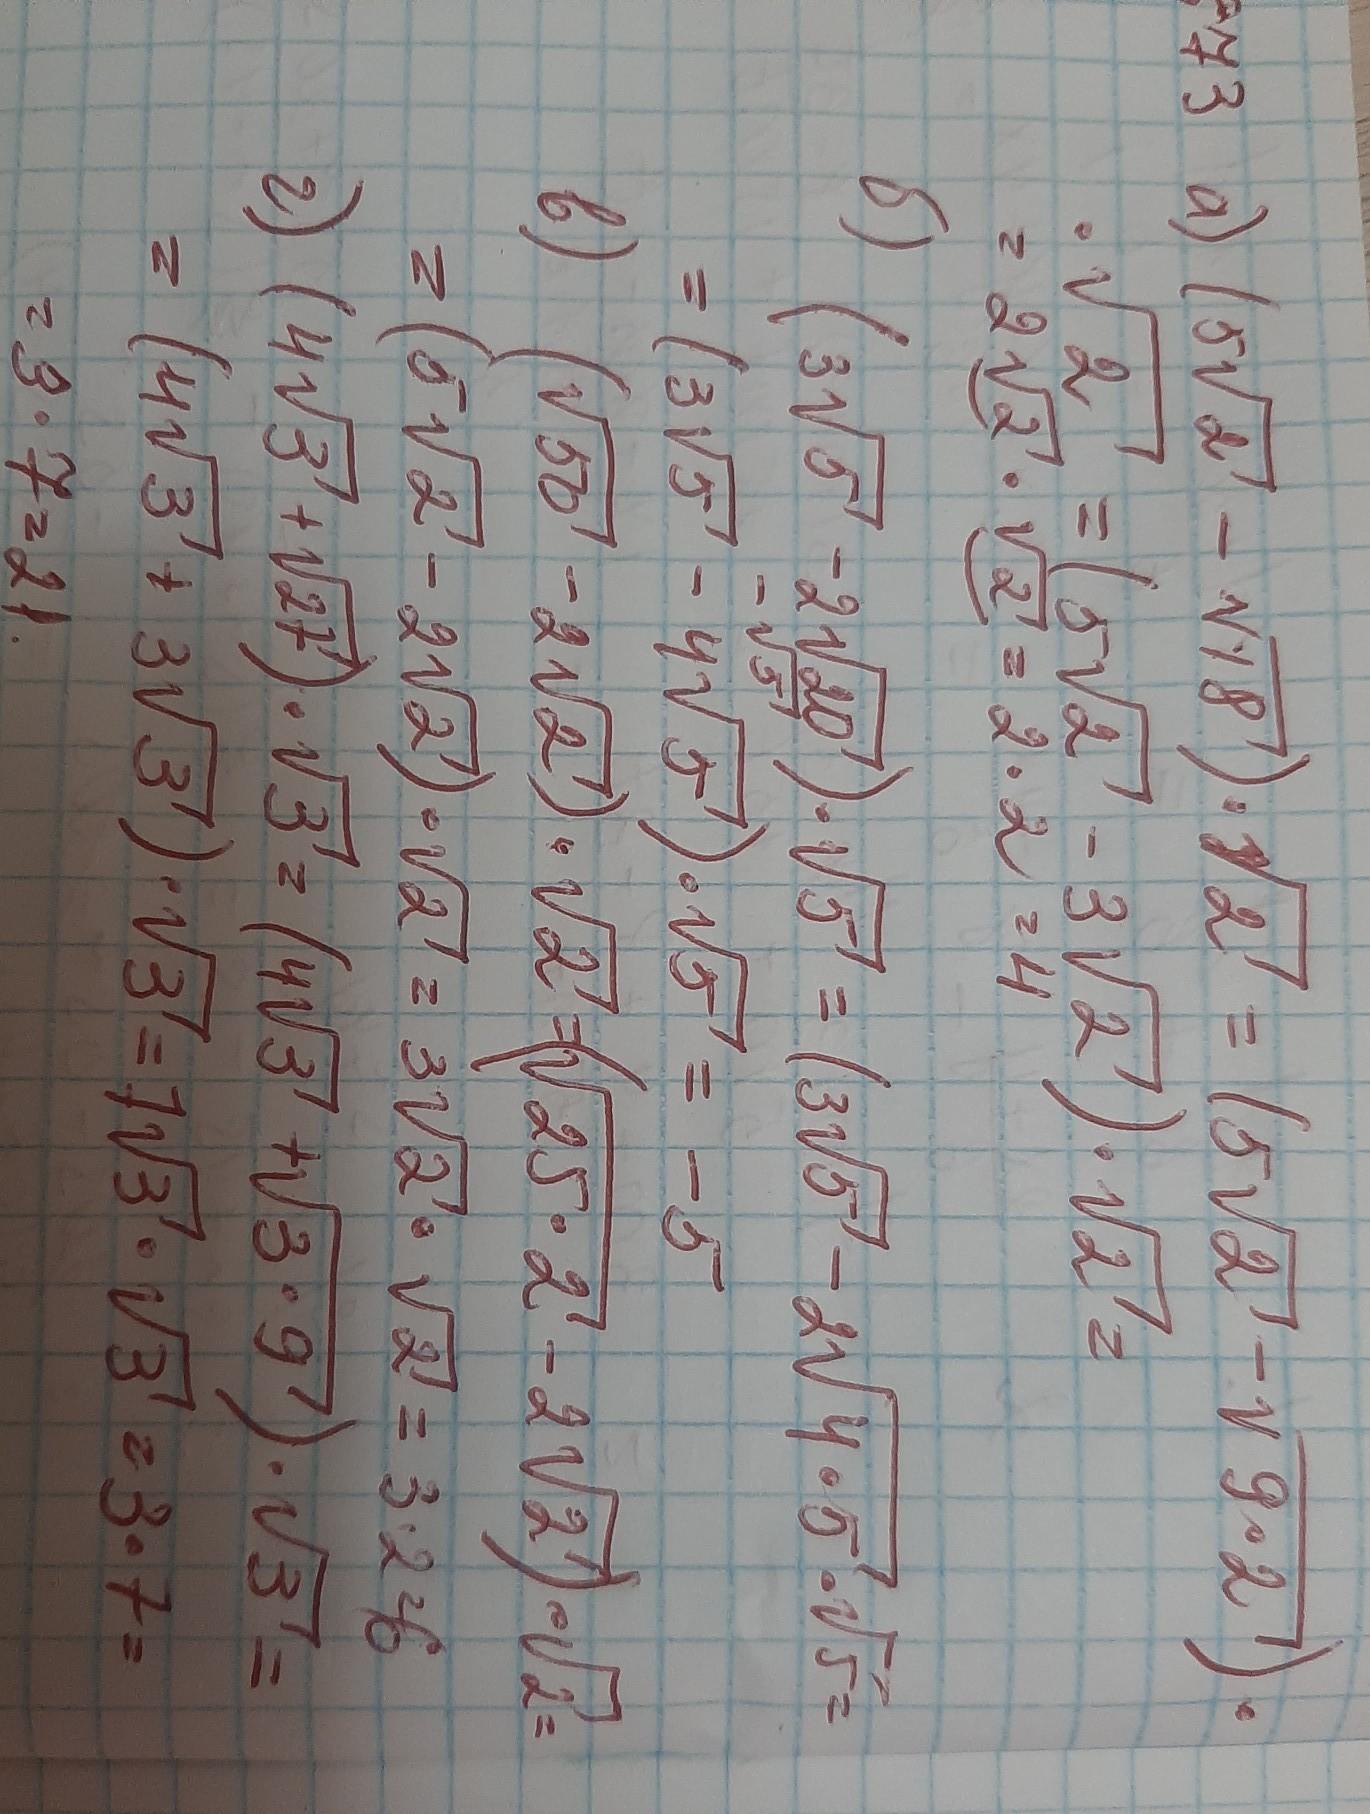 573 а) (5√2 - √18)·√2 = (5√2 - √9·2)·
·√2 = (5√2 - 3√2)·√2 =
= 2√2·√2 = 2·2 = 4
б) (3√5 - 2√20)·√5 = (3√5 - 2√4·5·√5 =
-√5
= (3√5 - 4√5)·√5 = -5
в) (√50 - 2√2)·√2 = (√25·2 - 2√2)·√2 =
= (5√2 - 2√2)·√2 = 3√2·√2 = 3·2=6
г) (4√3 + √27)·√3 = (4√3 + √3·9)·√3 =
= (4√3 + 3√3)·√3 = 7√3·√3 = 3·7 =
= 3·7=21.